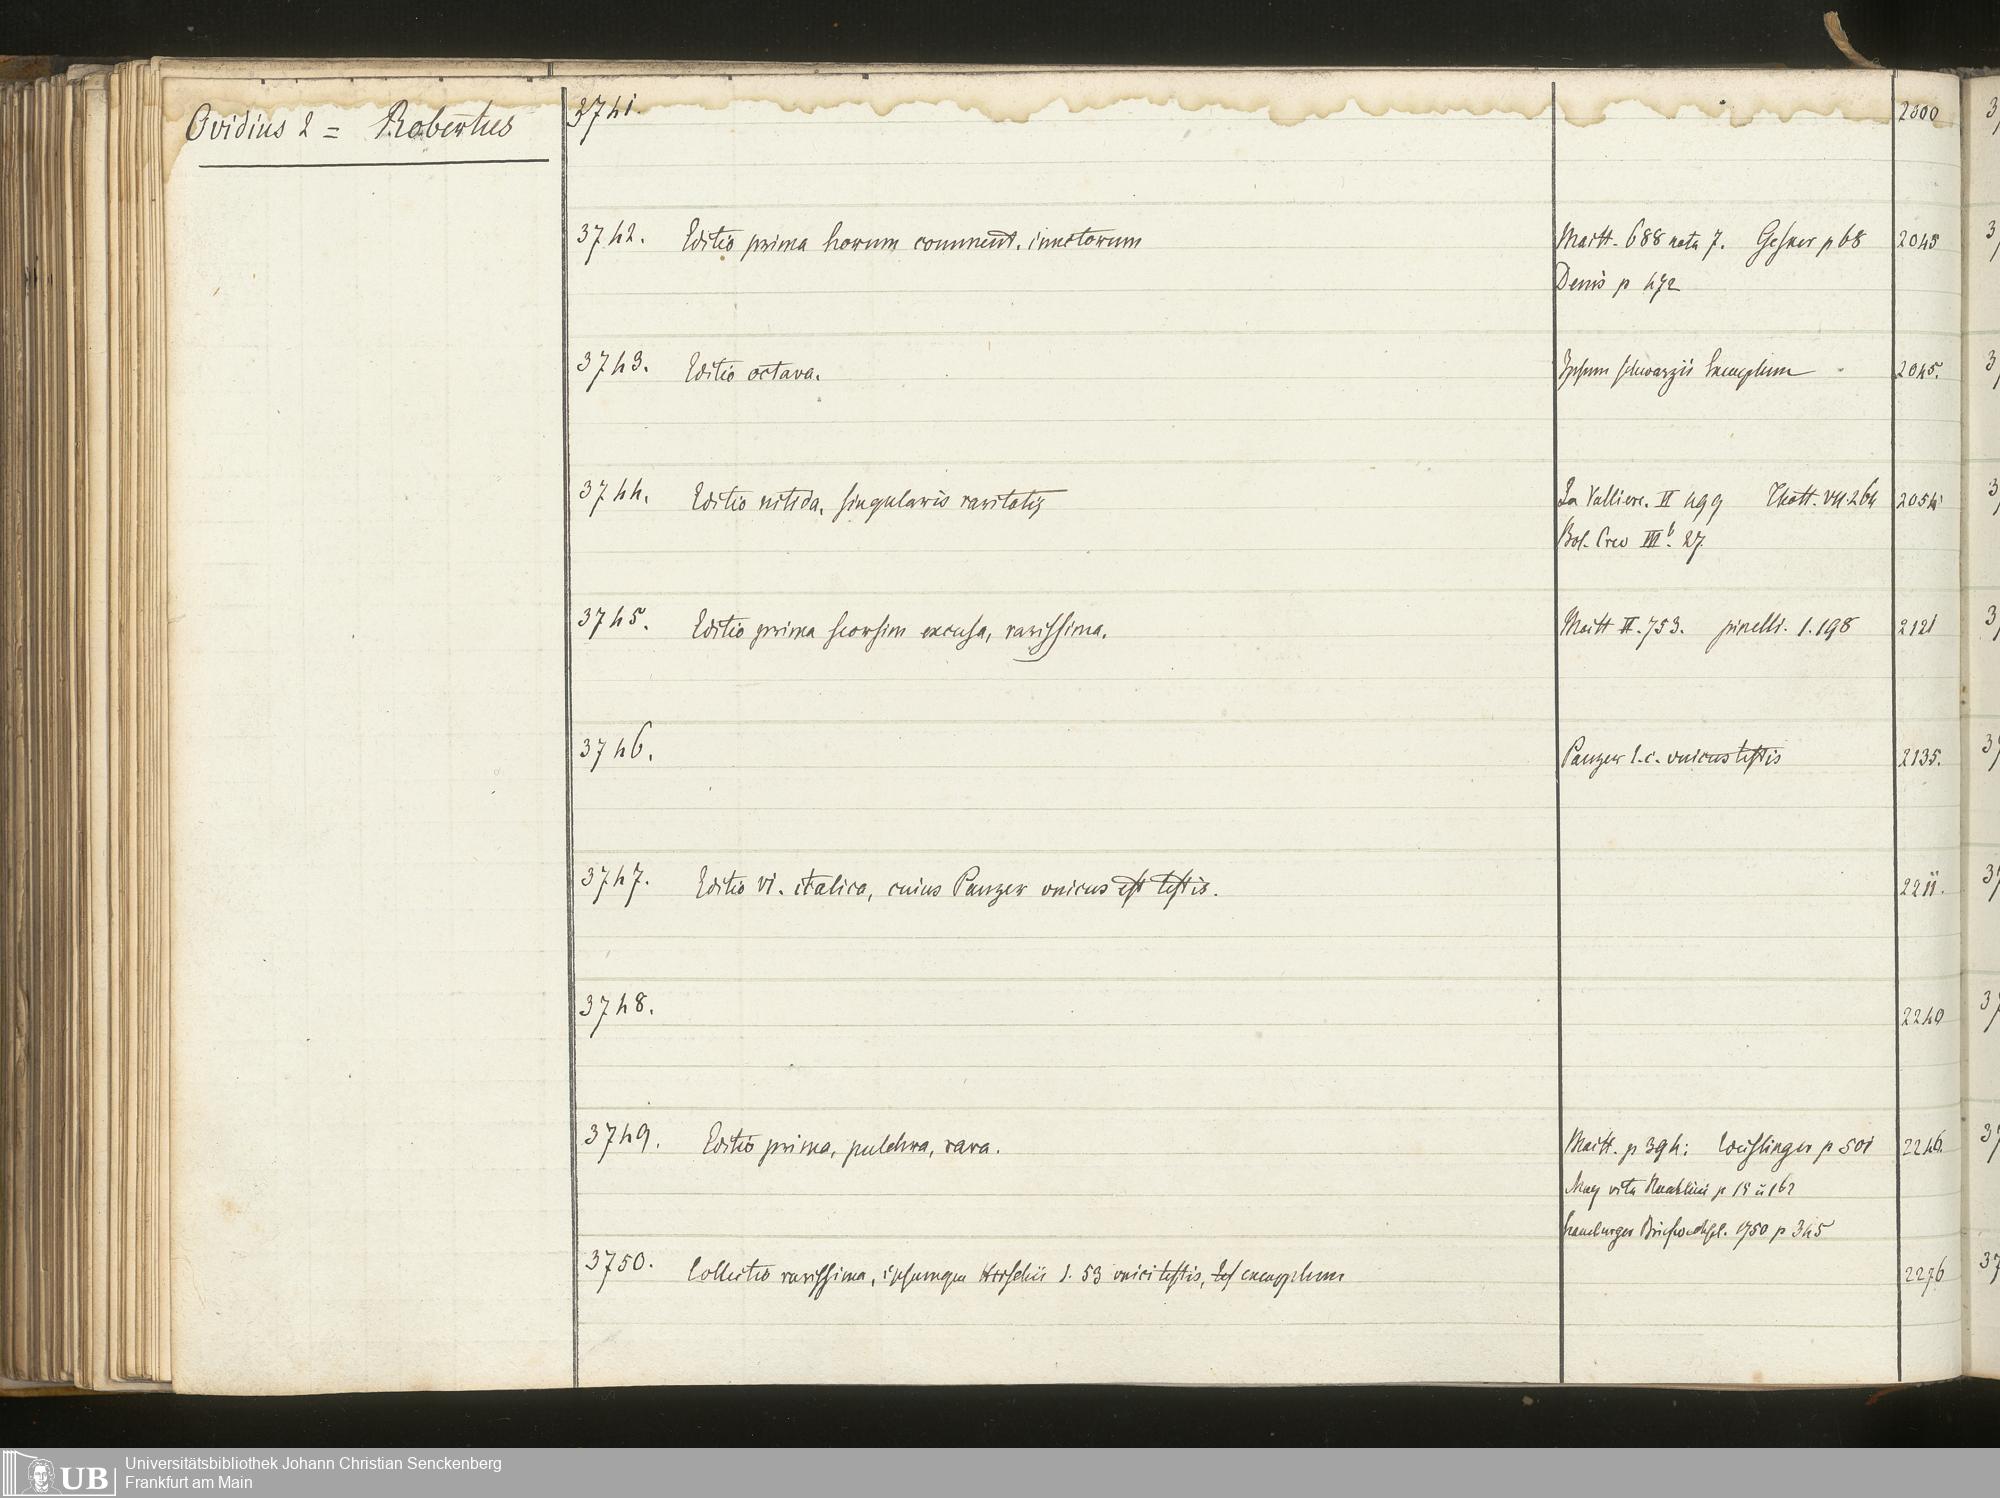 Ovidius 2 = Robertus
3741. 2000
3742. Editio prima horum comment. iunctorum Maitt. 688 nota 7. Gesner p 68 2043
Denis p 472
3743. Editio octava. Ipsum Schwarzii Exemplum 2045.
3744. Editio nitida, singularis raritatis La Valliere. II 499 Thott. VII.264 2054
Bol. Crev III b. 27
3745. Editio prima seorsim excusa, rarissima. Maitt II. 753. pinelli. 1.198 2121
3746. Panzer l.c. unicus testis 2135.
3747. Editio VI. italica, cuius Panzer unicus est testis. 2211.
3748. 2240
3749. Editio prima, pulchra, rara. Maitt. p 394: Weislinger p 501 2246.
May vita Reuchlini p 15 u 162
hamburger Briefwechsel. 1750 p 345
3750. Collectio rarissima, ipsumque Hirschii 1. 53 unici testis, exemplum 2276
Universitätsbibliothek Johann Christian Senckenberg
Frankfurt am Main
UB